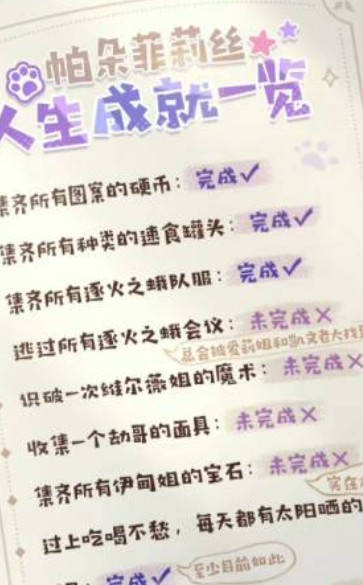 帕朵菲莉丝
人生成就一览
集齐所有图案的硬币：完成✓
集齐所有种类的速食罐头：完成✓
集齐所有逐火之蛾队服：完成✓
逃过所有逐火之蛾会议：未完成×
总会被爱莉姐和凯文老大找
识破一次维尔薇姐的魔术：未完成×
收集一个劫哥的面具：未完成×
集齐所有伊甸姐的宝石：未完成×
实在
过上吃喝不愁，每天都有太阳晒的
完成✓
至少目前如此